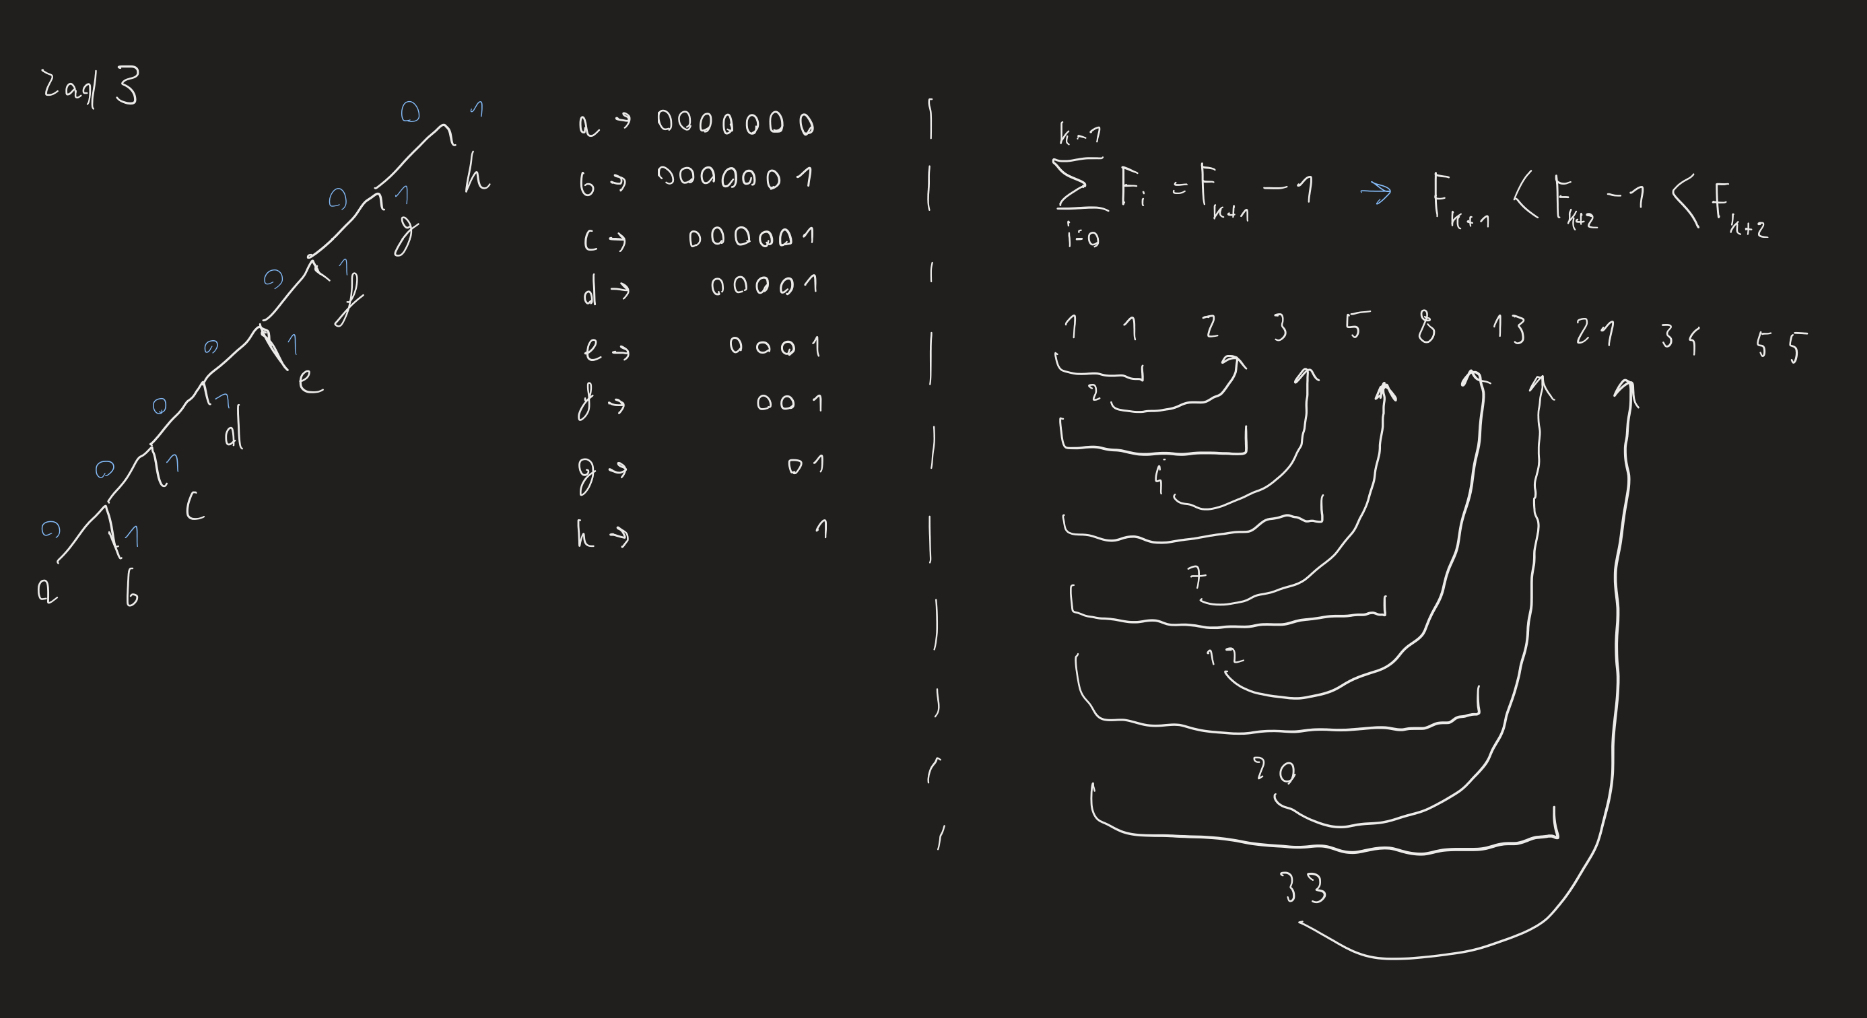 zad 3
0 1
h
0 1
g
0 1
f
0 1
e
0 1
d
0 1
c
0 1
a b
a → 0000000
b → 0000001
c → 000001
d → 00001
e → 0001
f → 001
g → 01
h → 1
k-1
∑ F_i = F_{k+1} - 1 → F_{k+1} < F_{k+2} - 1 < F_{k+2}
i=0
1 1 2 3 5 8 13 21 34 55
2
4
7
12
20
33